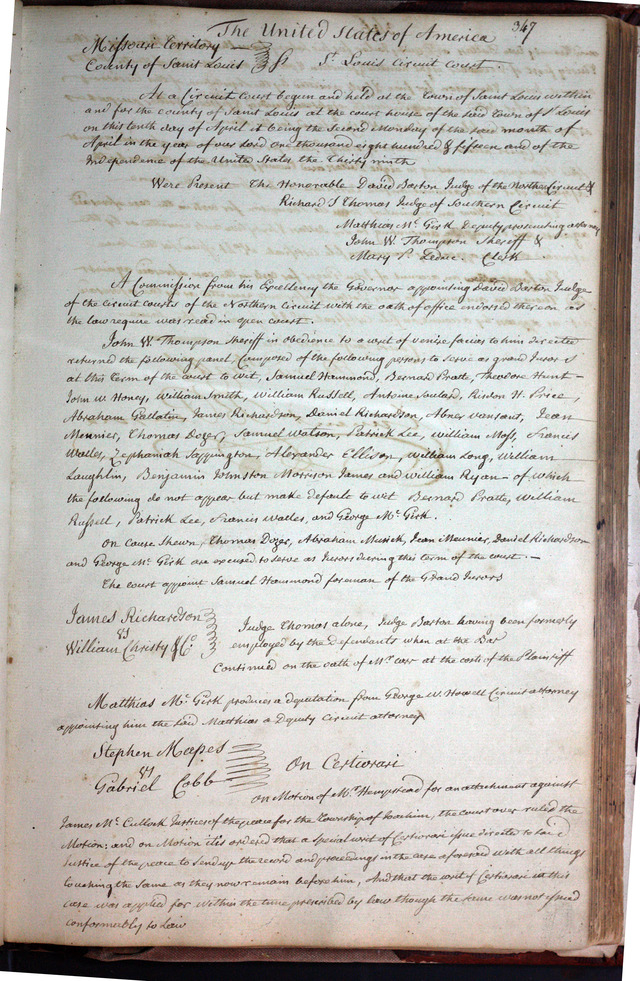 The United States of America
347
Missouri Territory
County of Saint Louis } Ss St. Louis Circuit Court.
At a Circuit Court begun and held at the Town of Saint Louis within
and for the county of Saint Louis at the court house of the said Town of St Louis
on this tenth day of April it being the second Monday of the said month of
April in the year of our Lord one thousand eight hundred & fifteen and of the
Independence of the United States the Thirty ninth
Were Present The Honorable David Barton Judge of the Northern Circuit &
Richard S Thomas Judge of Southern Circuit
Matthias Mc Girk Deputy prosecuting attorney
John W. Thompson Sheriff &
Mary P. Leduc Clerk
A Commission from his Excellency the Governor appointing David Barton Judge
of the circuit courts of the Northern Circuit with the oath of office endorsed thereon as
the law require was read in open court.
John W Thompson Sheriff in obedience to a writ of venire facias to him directed
returned the following panel, composed of the following persons to serve as grand Jurors
at this term of the court to wit, Samuel Hammond, Bernard Pratte, Theodore Hunt
John W. Honey, William Smith, William Russell, Antoine Soulard, Risdon H. Price,
Abraham Gallatin, James Richardson, Daniel Richardson, Abner Vansant, Jean
Meunier, Thomas Dozer, Samuel Watson, Patrick Lee, William Moss, Francis
Watles, Zephaniah Sappington, Alexander Ellison, William Long, William
Laughlin, Benjamin Johnston Morrison James and William Ryan - of which
the following do not appear but make default to wit Bernard Pratte, William
Russell, Patrick Lee, Francis Watles, and George Mc Girk.
On cause Shewn, Thomas Dozer, Abraham Musick, Jean Meunier, Daniel Richardson
and George Mc Girk are excused to serve as Jurors during this term of the court. -
The court appoint Samuel Hammond foreman of the Grand Jurors
James Richardson
vs
William Christy & Co
Judge Thomas alone, Judge Barton having been formerly
employed by the Defendants when at the Bar
Continued on the oath of Mr Carr at the costs of the Plaintiff
Matthias Mc Girk produces a deputation from George W. Howell Circuit attorney
appointing him the said Matthias a Deputy Circuit attorney
Stephen Mapes
vs
Gabriel Cobb
On Certiorari
On Motion of Mr Hempstead for an attachment against
James Mc Cullock Justice of the peace for the Township of Joachim, the court over ruled the
Motion: and on Motion it is ordered that a special writ of Certiorari issue directed to said
Justice of the peace to send up the record and proceedings in the case aforesaid with all things
touching the same as they now remain before him, And that the writ of Certiorari in this
case was applied for within the time prescribed by law though the same was not issued
conformably to Law